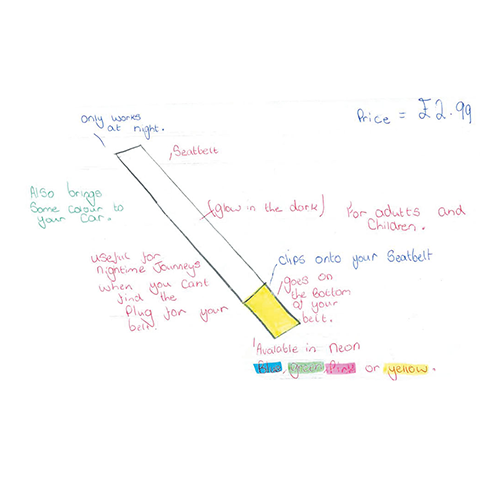 only works
at night.
Price = £2.99
Seatbelt
Also brings
some colour to
your car.
(glow in the dark)
For adults and
children.
useful for
nightime journeys
when you cant
find the
plug for your
belt.
clips onto your seatbelt
goes on
the bottom
of your
belt.
Available in neon
Blue, green, Pink or yellow.